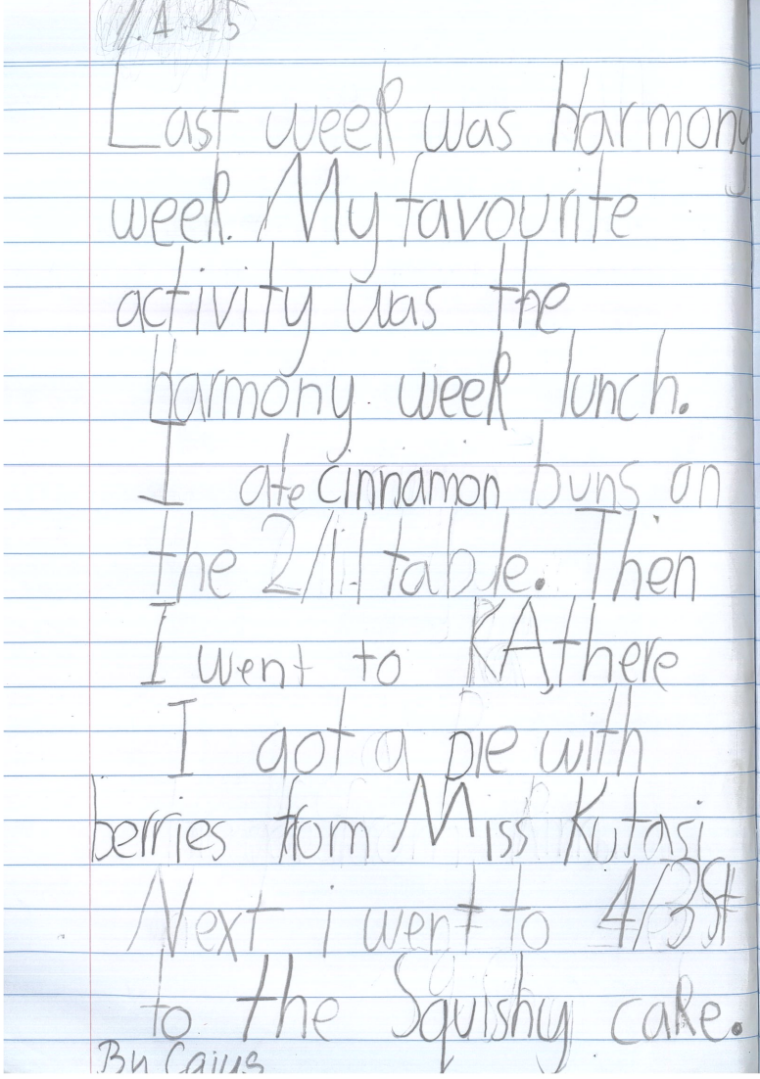 1.4.25
Last week was Harmony
week. My favourite
activity was the
Harmony week lunch.
I ate cinnamon buns on
the table. Then
I went to KA, there
I got a pie with
berries from Miss Kutasi
Next i went to 4/3
to the Squishy cake.
By Caius